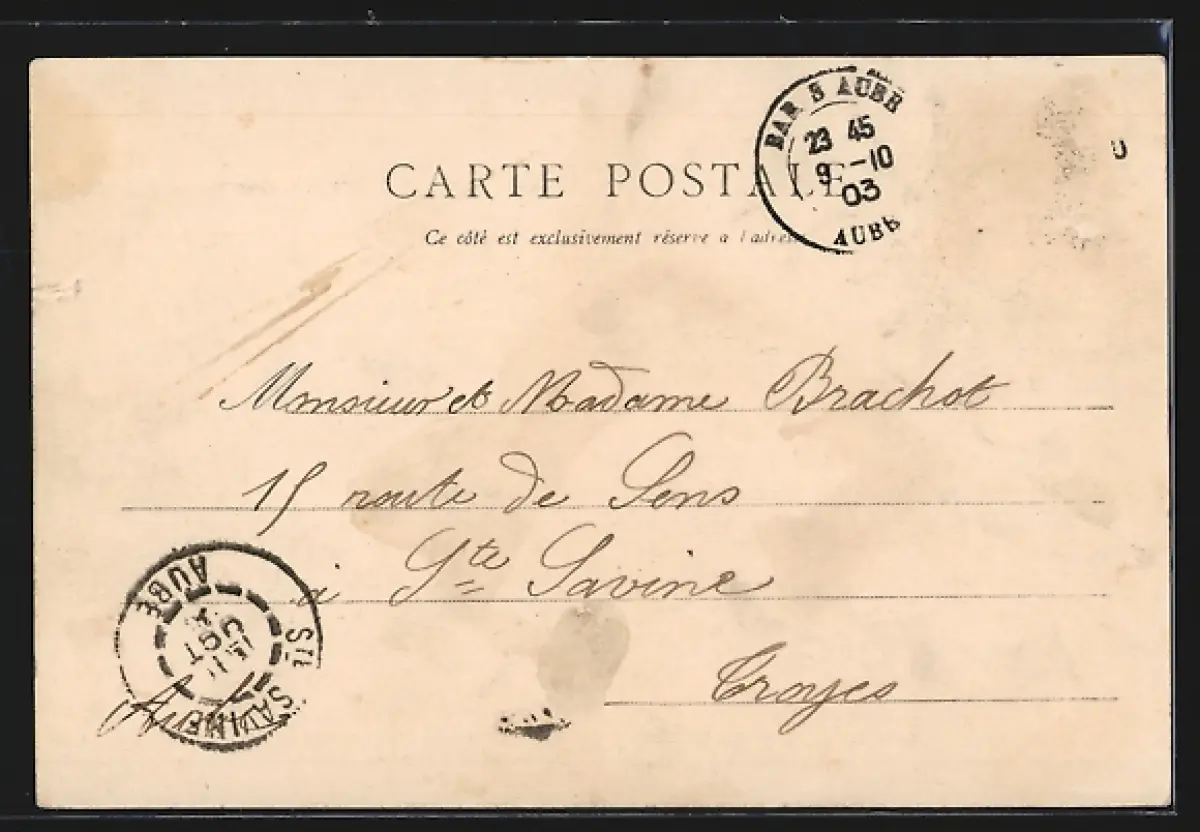 BAR S AUBE
23 45
9 -10
03
AUBE
CARTE POSTALE
Ce côté est exclusivement réservé a l'adresse
Monsieur et Madame Brachot
15 route de Sens
à Ste Savine
Troyes
Aube
STE SAVINE
AUBE